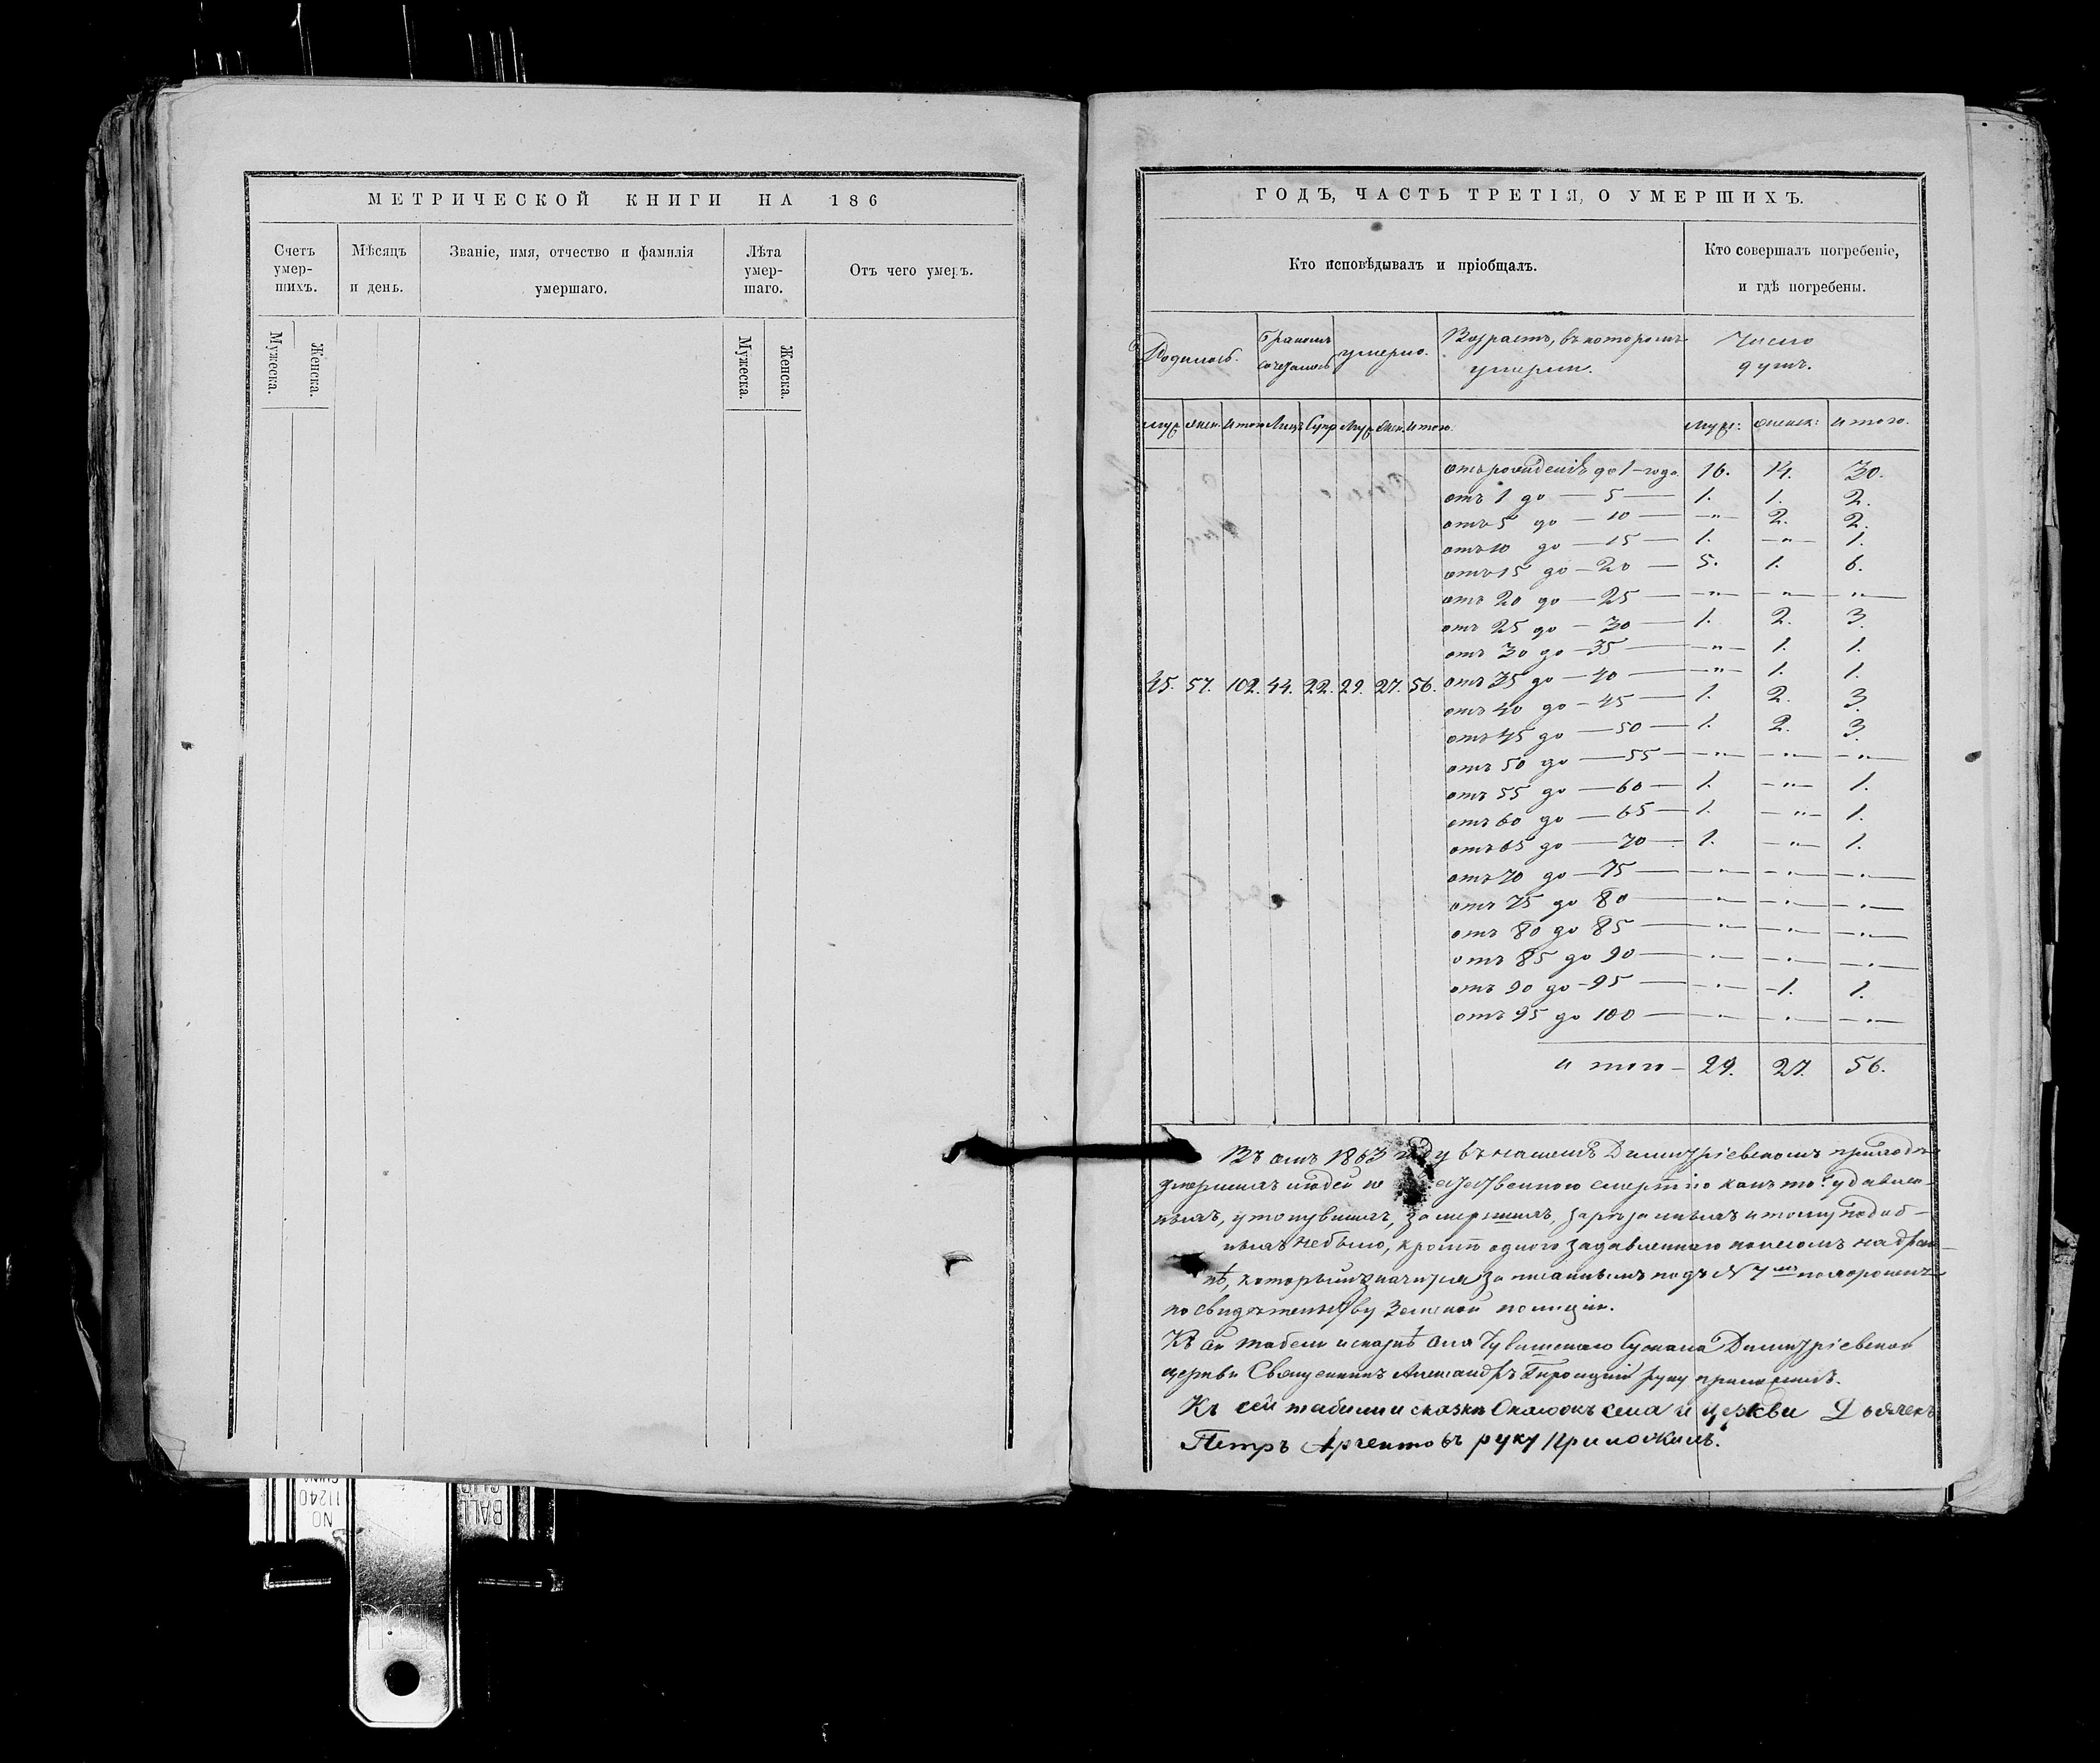 МЕТРИЧЕСКОЙ КНИГИ НА 186
Счетъ умер-шихъ.
Мѣсяцъ и день.
Званіе, имя, отчество и фамилія умершаго.
Лѣта умер-шаго.
Отъ чего умеръ.
Мужеска. Женска. Мужеска. Женска.
ГОДЪ, ЧАСТЬ ТРЕТІЯ, О УМЕРШИХЪ.
Кто исповѣдывалъ и пріобщалъ.
Кто совершалъ погребеніе,
и гдѣ погребены.
Родилось. Бракомъ сочеталось умерло. Возрастъ, въ которомъ умерли. Число душъ.
муж. женс. итого Лицъ Супр. муж. женс. итого. муж: женск: итого.
отъ рожденія до 1-года 16. 14. 30.
отъ 1 до — 5 — 1. 1. 2.
отъ 5 до — 10 — — „ — 2. 2.
отъ 10 до — 15 — 1. — „ — 1.
отъ 15 до — 20 — 5. 1. 6.
отъ 20 до — 25 — — „ — — „ — — „ —
отъ 25 до — 30 — 1. 2. 3.
отъ 30 до — 35 — — „ — 1. 1.
45. 57. 102. 44. 22. 29. 27. 56. отъ 35 до — 40 — — „ — 1. 1.
отъ 40 до — 45 — 1. 2. 3.
отъ 45 до — 50 — 1. 2. 3.
отъ 50 до — 55 — — „ — — „ — — „ —
отъ 55 до — 60 — 1. — „ — 1.
отъ 60 до — 65 — 1. — „ — 1.
отъ 65 до — 70 — 1. — „ — 1.
отъ 70 до — 75 — — „ — — „ — — „ —
отъ 75 до 80 — — „ — — „ — — „ —
отъ 80 до 85 — — „ — — „ — — „ —
отъ 85 до 90 — — „ — — „ — — „ —
отъ 90 до — 95 — — „ — 1. 1.
отъ 95 до 100 — — „ — — „ — — „ —
итого — 29. 27. 56.
Въ семъ 1863 году въ нашемъ Димитріевскомъ приходѣ
умершихъ людей не естественною смертію какъ то: удавлен-
ныхъ, утонувшихъ, замерзшихъ, зарѣзанныхъ и тому подоб-
ныхъ не было, кромѣ одного задавленнаго колесомъ на
который значится записаннымъ подъ № 7мъ похороненъ
по свидѣтельству Земской полиціи.
Къ сей табели и сказкѣ села Чувашскаго Сускана Димитріевской
церкви Священникъ Александръ руку приложилъ.
Къ сей табели и сказкѣ села и церкви Дьячекъ
Петръ Аргентовъ руку приложилъ.
NO 11240
BALL